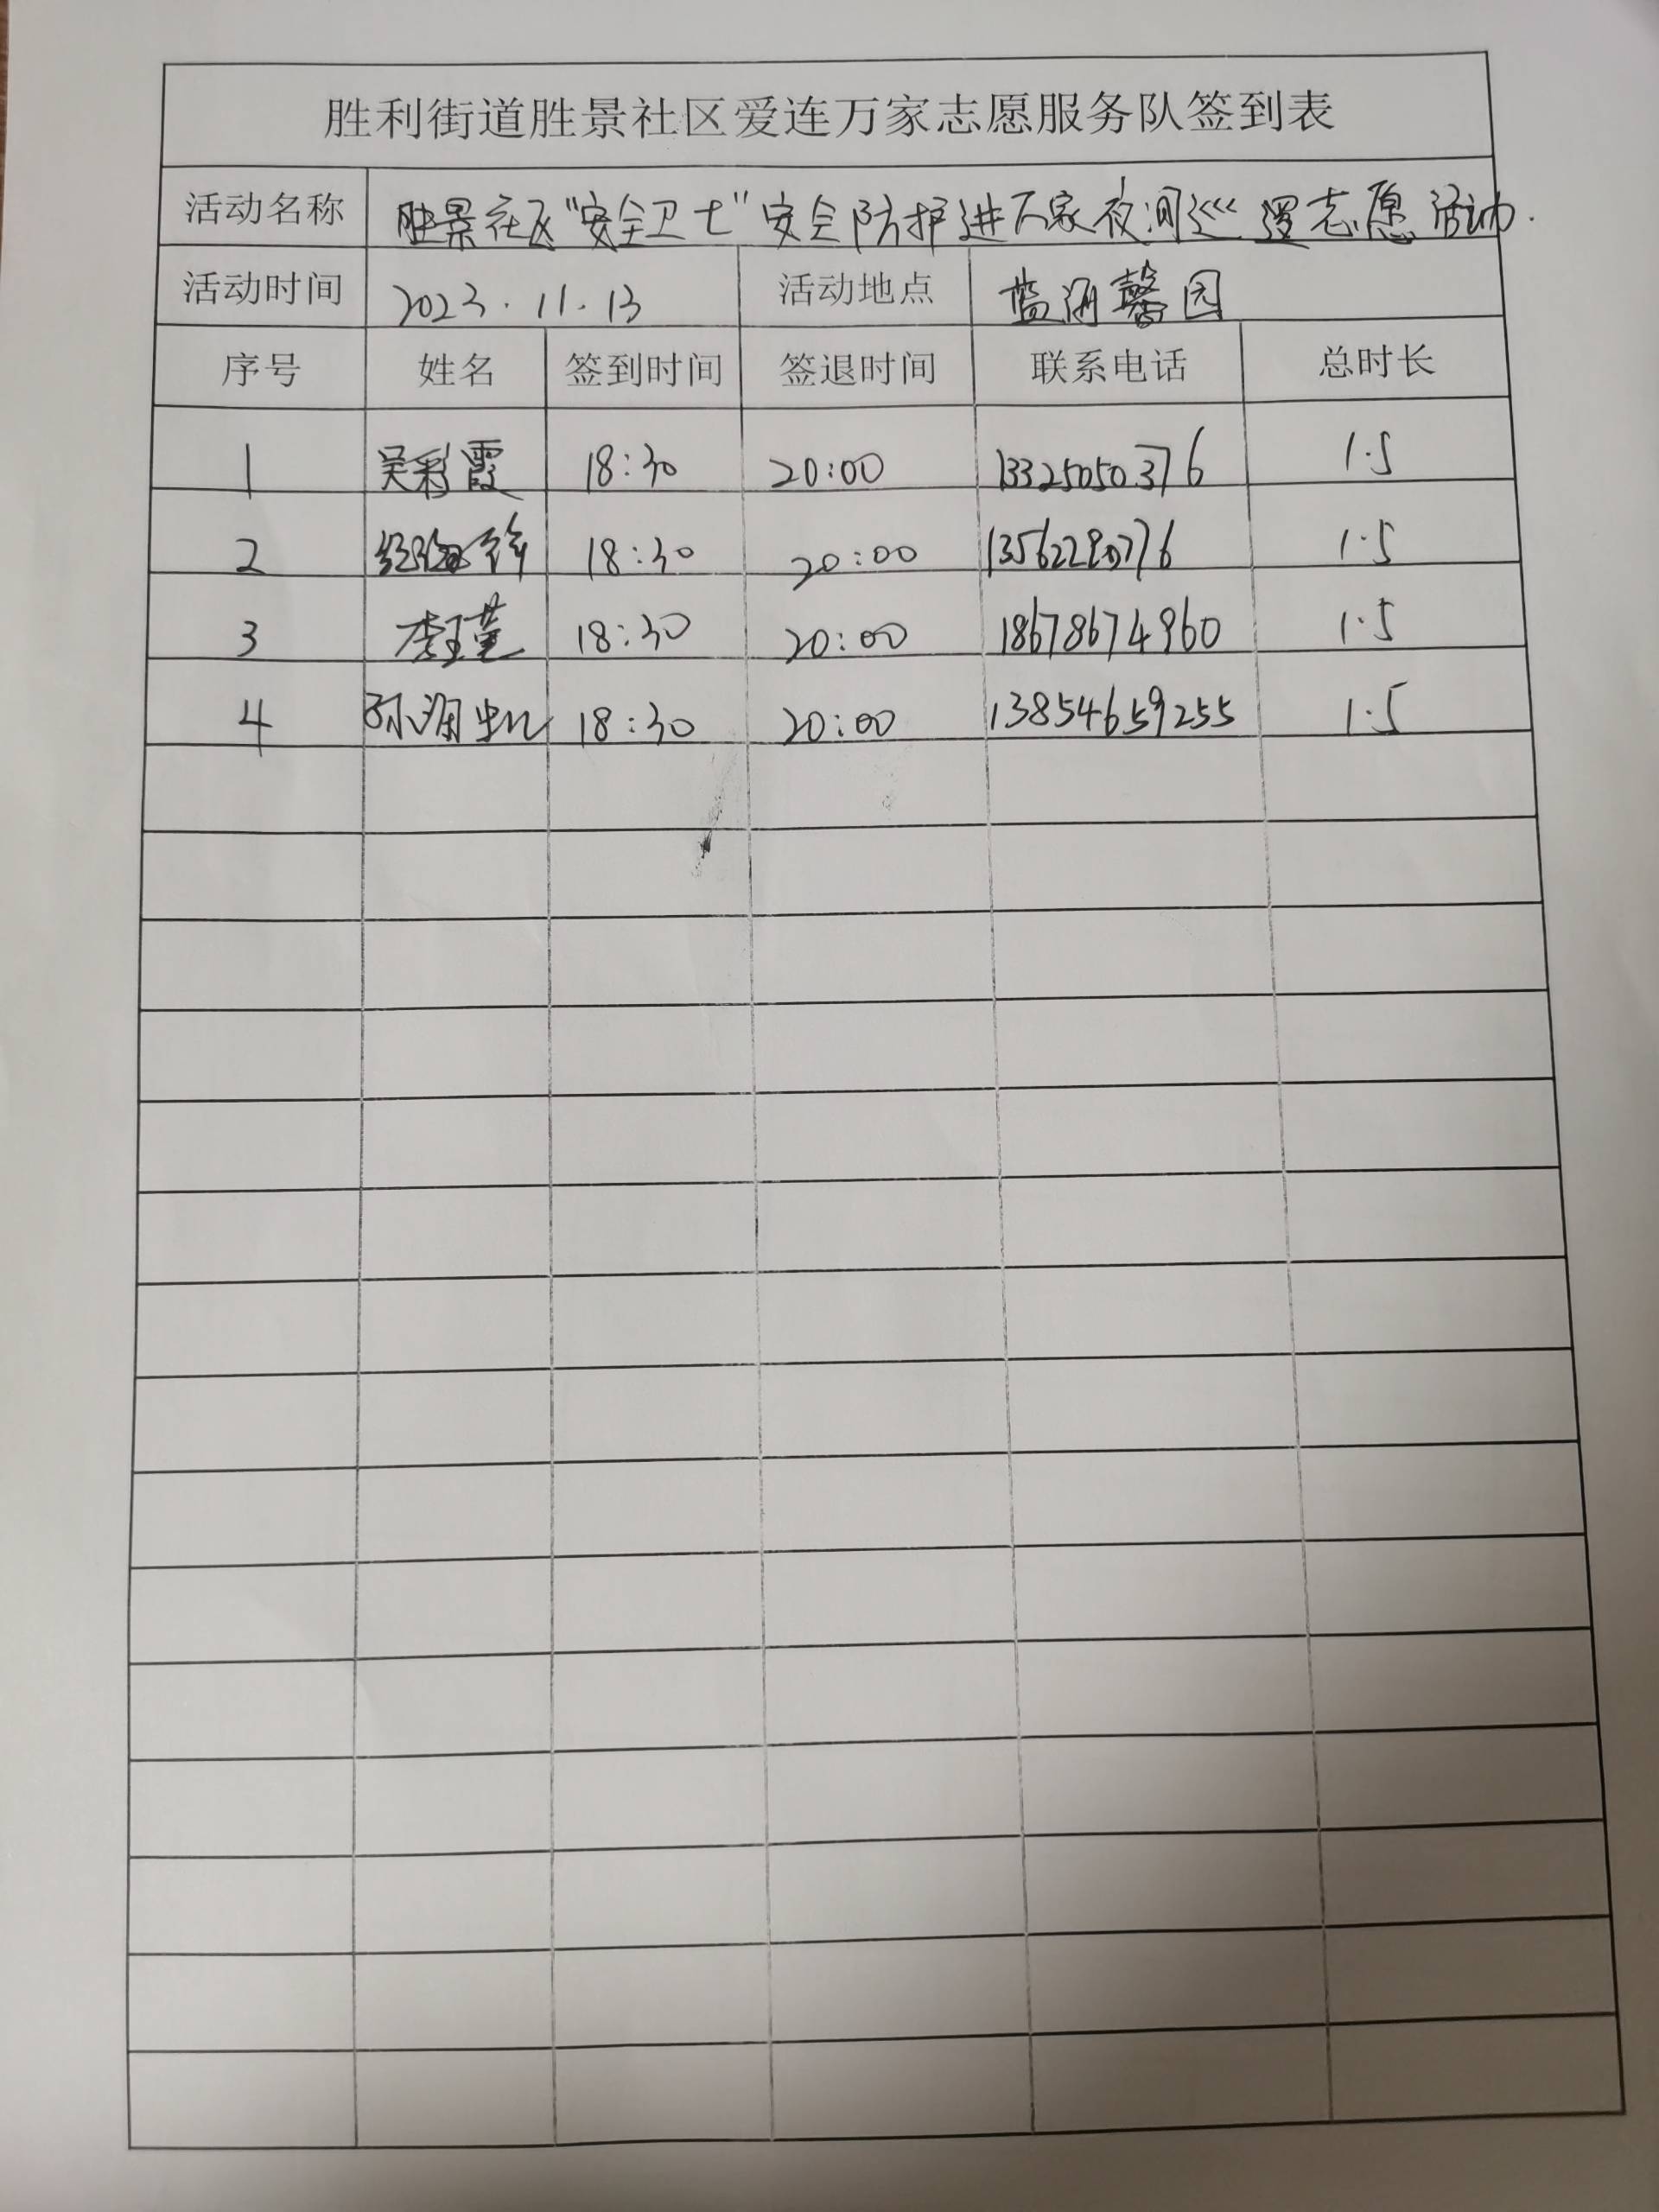 胜利街道胜景社区爱连万家志愿服务队签到表
活动名称 胜景社区“安全卫士”安全防护进万家夜间巡逻志愿活动.
活动时间 2023.11.13 活动地点 蓝海馨园
序号 姓名 签到时间 签退时间 联系电话 总时长
1 吴彩霞 18:30 20:00 13325050376 1.5
2 18:30 20:00 1.5
3 李瑾 18:30 20:00 18678674960 1.5
4 孙海虹 18:30 20:00 13854659255 1.5